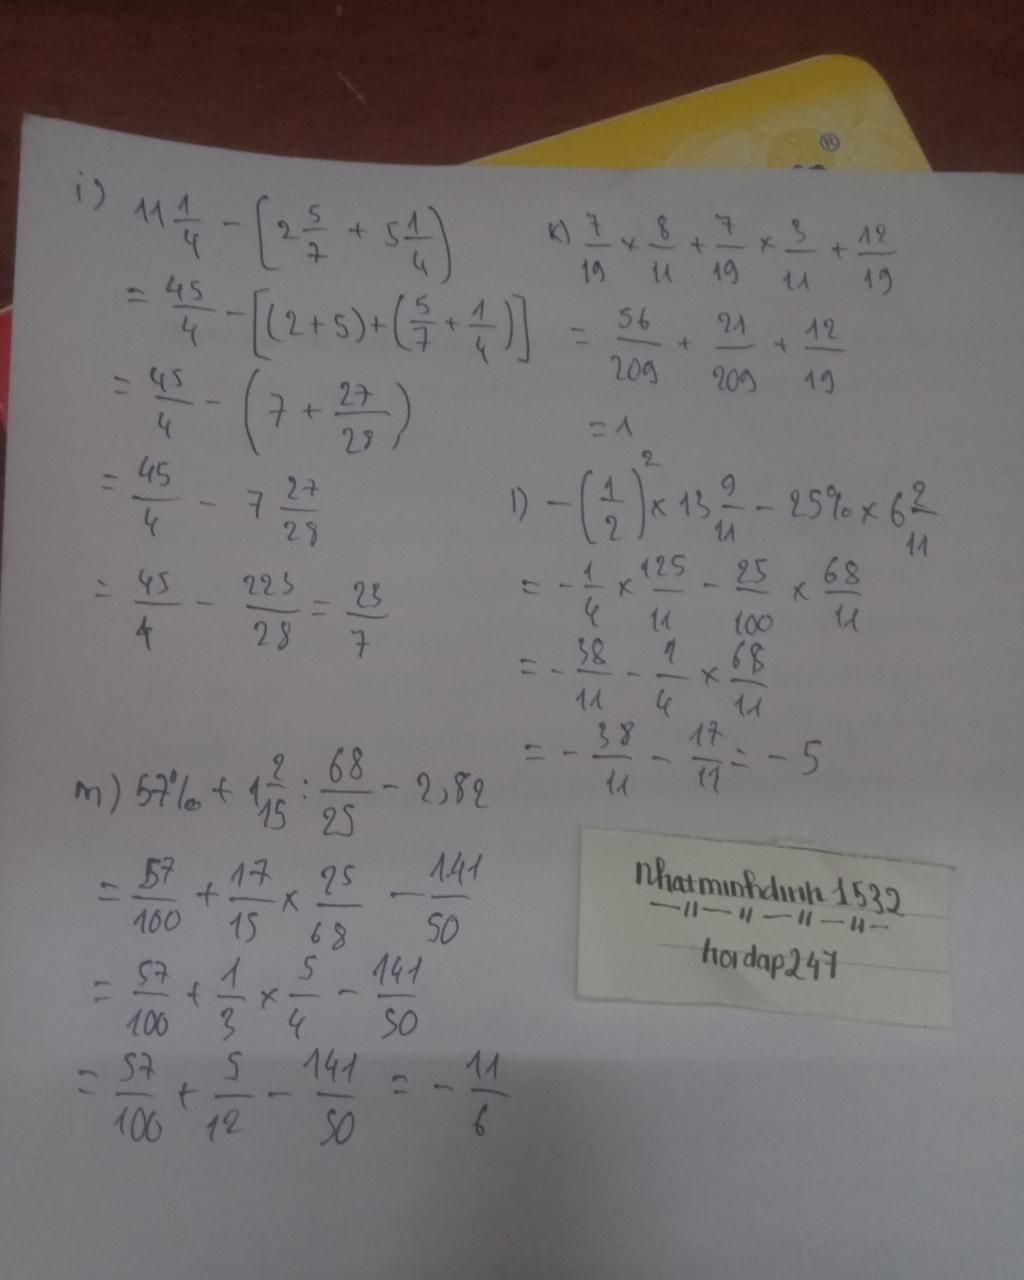 i) 11 1/4 - [2 5/7 + 5 1/4)
= 45/4 - [(2+5)+(5/7 + 1/4)]
= 45/4 - (7 + 27/28)
= 45/4 - 7 27/28
= 45/4 - 223/28 = 23/7
k) 7/19 × 8/11 + 7/19 × 3/11 + 12/19
= 56/209 + 21/209 + 12/19
= 1
l) - (1/2)² × 13 9/11 - 25% × 6 2/11
= - 1/4 × 125/11 - 25/100 × 68/11
= - 38/11 - 1/4 × 68/11
= - 38/11 - 17/11 = - 5
m) 57% + 1 2/15 : 68/25 - 2,82
= 57/100 + 17/15 × 25/68 - 141/50
= 57/100 + 1/3 × 5/4 - 141/50
= 57/100 + 5/12 - 141/50 = - 11/6
nhatminhdinh1532
—11—11—11—11—
hoidap247
®